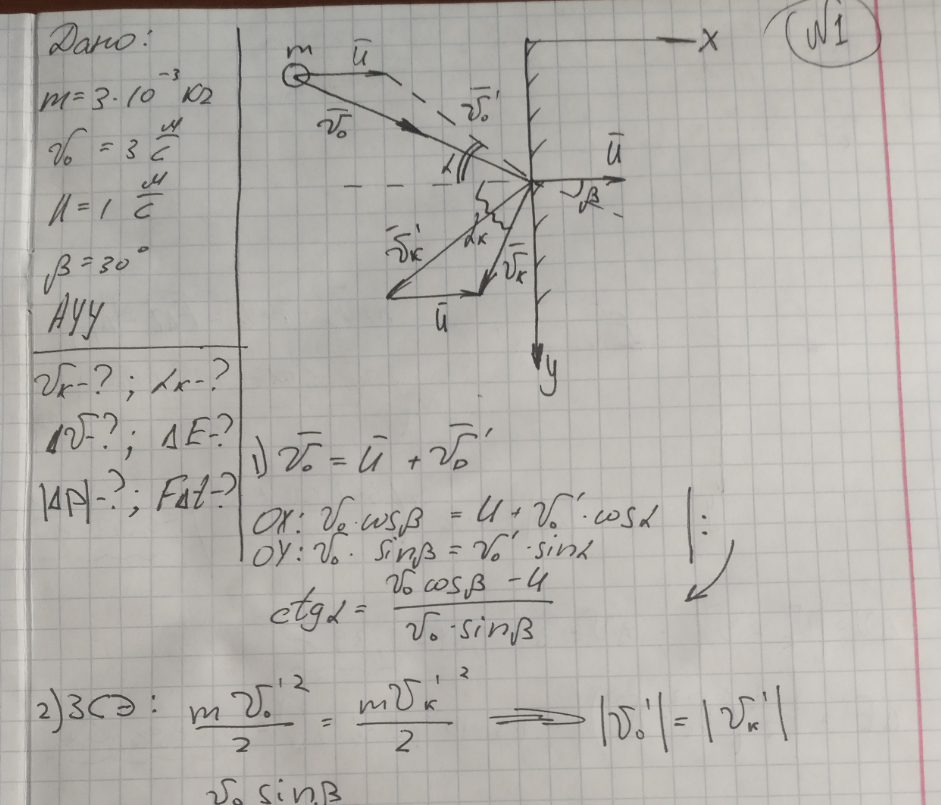 Дано:
m = 3·10⁻³ кг
v₀ = 3 м/с
U = 1 м/с
β = 30°
АУУ
vк-? ; αк-?
Δv-? ; ΔE-?
|Δp|-? ; FΔt-?
N1
m
ū
x
v̄₀
v̄₀'
α
ū
β
v̄к'
αк
v̄к
ū
y
1) v̄₀ = ū + v̄₀'
OX: v₀·cosβ = U + v₀'·cosα | :
OY: v₀· sinβ = v₀'·sinα
ctgα = (v₀ cosβ - U) / (v₀·sinβ)
2) ЗСЭ: mv₀'²/2 = mvк'²/2 ⟹ |v₀'| = |vк'|
v₀ sinβ